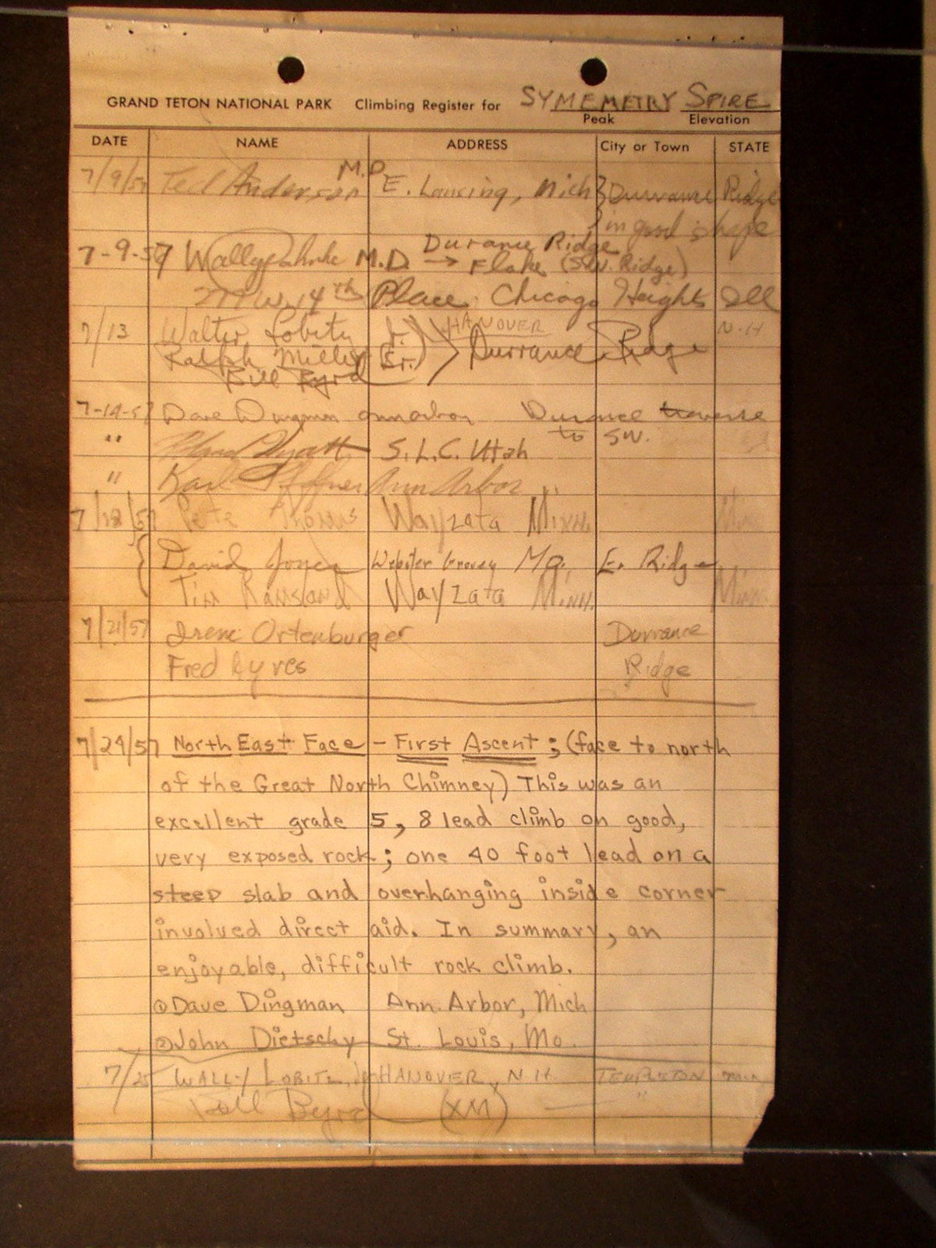 GRAND TETON NATIONAL PARK Climbing Register for SYMEMETRY SPIRE
Peak Elevation
DATE NAME ADDRESS City or Town STATE
M.D.
7/9/57 Ted Anderson E. Lansing, Mich } Durrance Ridge
in good shape
Durance Ridge
7-9-57 Wally M.D. → Flake (S.W. Ridge)
W. 14th Place Chicago Heights Ill
7/13 Walter Lobitz Jr. HANOVER N.H
Ralph Miller (Sr.) Durrance Ridge
Bill Byrd
7-14-57 Dave Dingman annarbor Durance traverse
to SW.
" S.L.C. Utah
" Karl Ann Arbor
7/18/57 Pete Wayzata Minn. Minn
{ David Jones Webster Groves Mo. E. Ridge
Tim Wayzata Minn. Minn.
7/21/57 Irene Ortenburger Durrance
Fred Ayres Ridge
7/24/57 North East Face - First Ascent; (face to north
of the Great North Chimney) This was an
excellent grade 5, 8 lead climb on good,
very exposed rock; one 40 foot lead on a
steep slab and overhanging inside corner
involved direct aid. In summary, an
enjoyable, difficult rock climb.
①Dave Dingman Ann Arbor, Mich
②John Dietschy St. Louis, Mo.
7/25 WALLY LOBITZ, Jr HANOVER, N.H. TEMPLETON
Bill Byrd (XM) — "